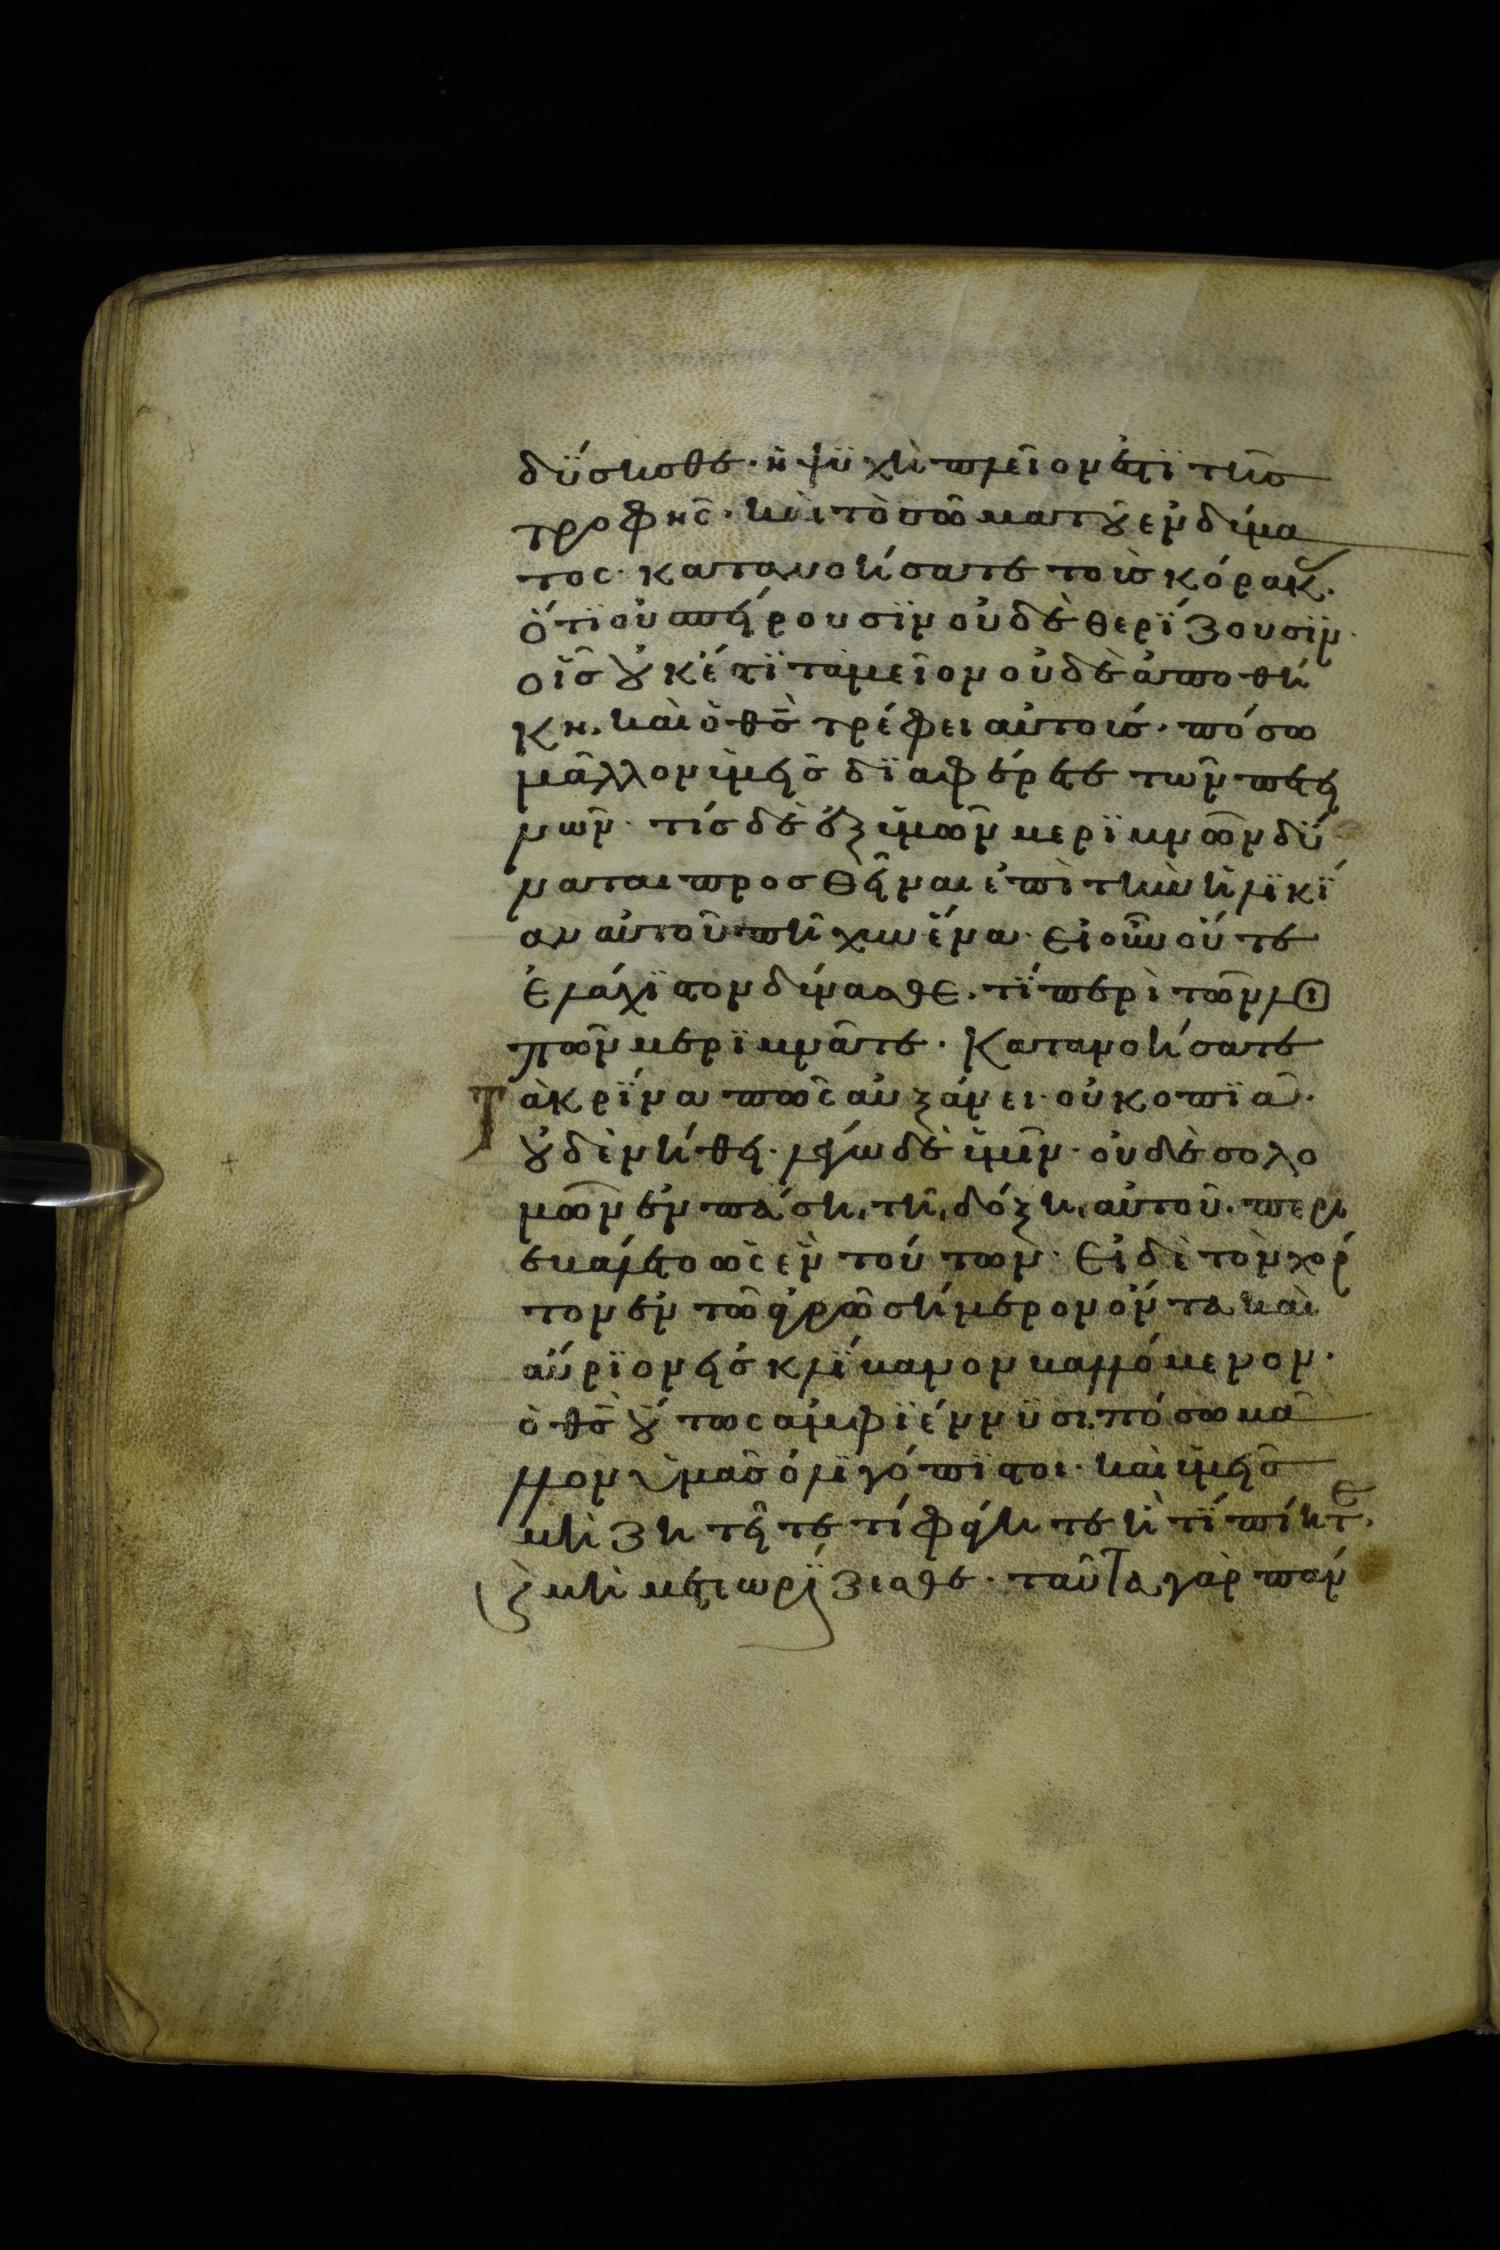 δΰσησθε· ἡ ψϋχὴ πλεῖον ἐστϊ τῆσ
τροφῆς· καὶ τὸ σῶμα τοῦ ενδύμα
τος· κατανοήσατε τοὺσ κόρακ·
ὅτϊ οὐ σπείρουσϊν οὐδὲ θερΐζουσϊν·
οἷσ οὐκ έστϊ ταμεῖον οὐδὲ ἀποθή
κη. καὶ ὁ θς τρέφει αὐτούσ· πόσω
μᾶλλον ὑμεῖσ δϊαφέρετε τῶν πετει
νῶν· τίσ δὲ ἐξ ὑμῶν μερϊμνῶν δύ
ναται προσθεῖναι ἐπὶ τὴν ἡλϊκΐ
αν αὐτοῦ πῆχυν ἕνα· εἰ οὖν οὔτε
ἐλάχϊστον δύνασθε. τΐ περὶ τῶν λοι
πῶν μερϊμνᾶτε· Κατανοήσατε
Τὰ κρΐνα πῶς αὐξάνει· οὐ κοπϊᾶ·
οὐδὲ νήθει· λέγω δὲ ὑμῖν· οὐδὲ σολο
μῶν ἐν πάση τῆ δόξη αὐτοῦ· περι
εβάλετο ὡς ἓν τούτων· Εἰ δὲ τὸν χόρ
τον ἐν τῶ ἀγρῶ σήμερον όντα καὶ
αύρϊον εἰσ κλΐβανον βαλλόμενον·
ὁ θς οὕτως αμφϊέννϋσι. πόσω μᾶ
λλον ὑμᾶσ ὀλϊγόπϊστοι· καὶ ὑμεῖσ
μὴ ζητεῖτε τί φάγητε ἢ τΐ πίητε·
καὶ μὴ μετεωρΐζεσθε· ταῦτα γὰρ πάν